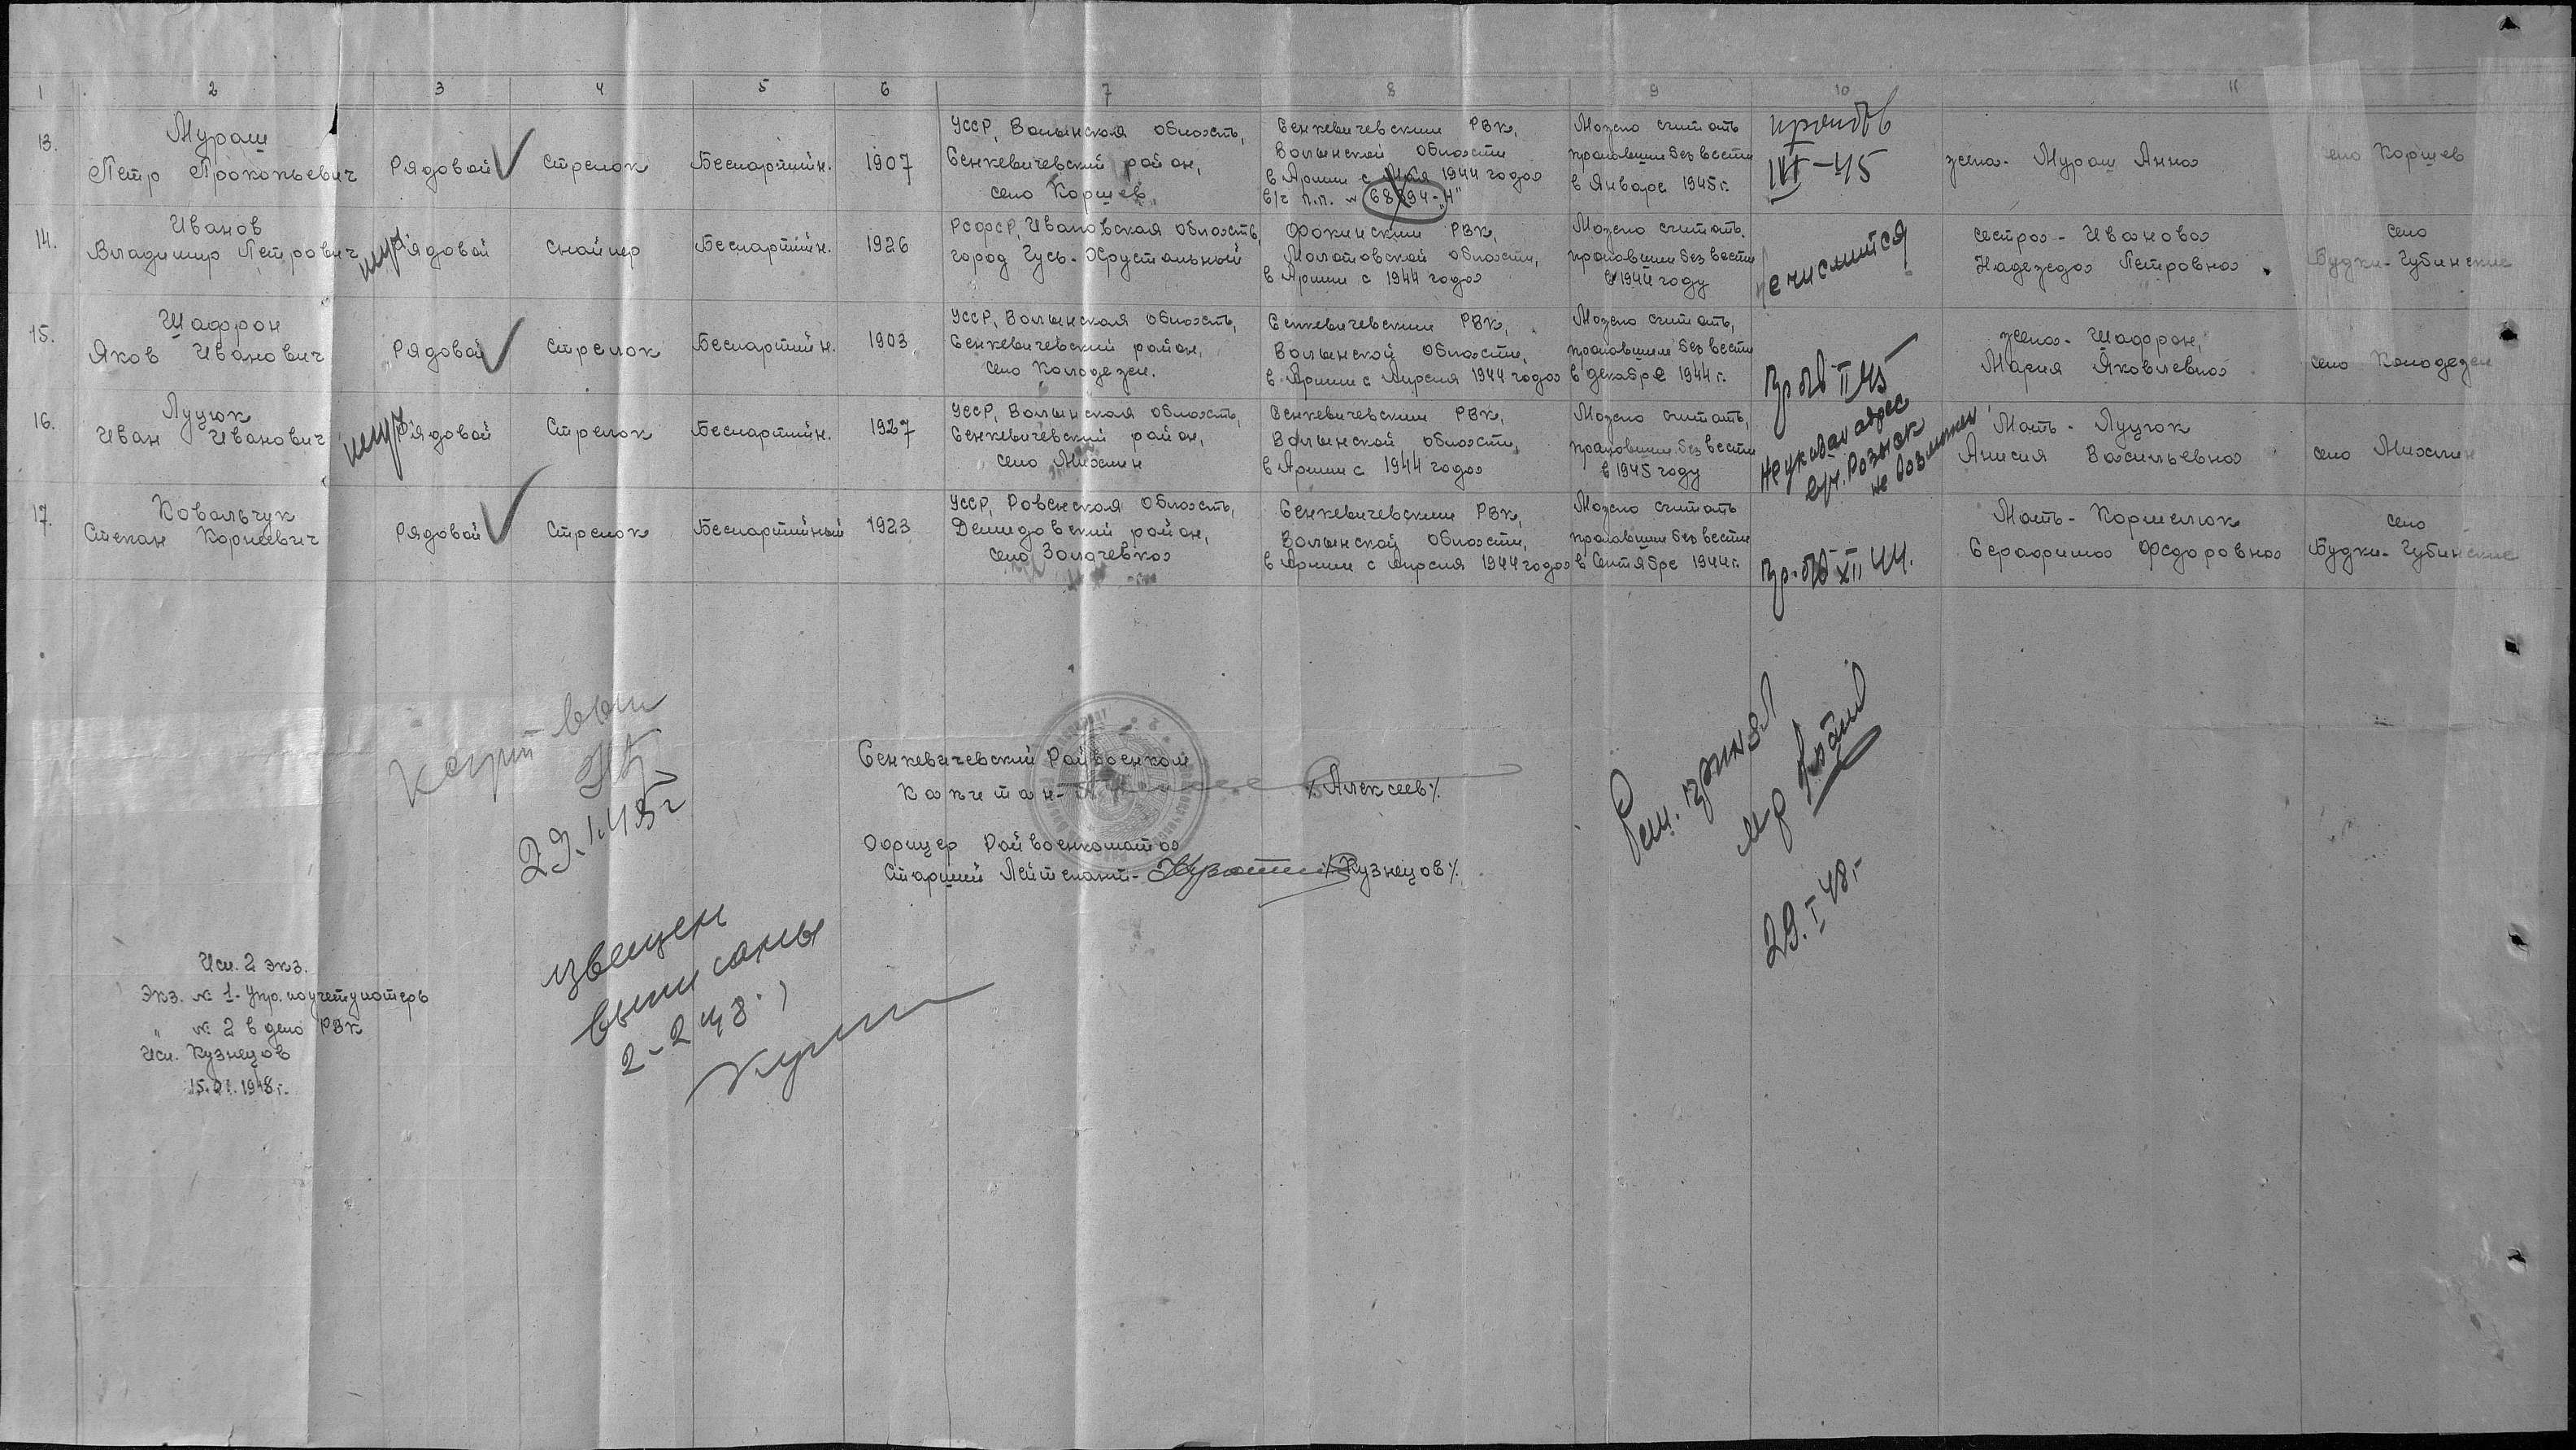 1 2 3 4 5 6 7 8 9 10 11
13.
Мураш
Петр Прокопьевич
Рядовой
Стрелок
Беспартийн.
1907
УССР, Волынская область,
Сенкевичевский район,
село Коршев
Сенкевичевским РВК,
Волынской области
в Армии с Мая 1944 года
в/ч п.п. № 68894-"Н"
Можно считать
пропавшим без вести
в Январе 1945 г.
III-45
жена- Мураш Анна
село Коршев
14.
Иванов
Владимир Петрович
Рядовой
снайпер
Беспартийн.
1926
РСФСР, Ивановская область,
город Гусь-Хрустальный
Фокинским РВК,
Молотовской области,
в Армии с 1944 года
Можно считать
пропавшим без вести
в 1944 году
не числится
сестра- Иванова
Надежда Петровна
село
Будки-Губинские
15.
Шафран
Яков Иванович
Рядовой
Стрелок
Беспартийн.
1903
УССР, Волынская область,
Сенкевичевский район,
село Колодезен.
Сенкевичевским РВК,
Волынской области,
в Армии с Апреля 1944 года
Можно считать,
пропавшим без вести
в декабре 1944 г.
II 45
жена- Шафран,
Мария Яковлевна
село Колодезен
16.
Луцюк
Иван Иванович
Рядовой
Стрелок
Беспартийн.
1927
УССР, Волынская область,
Сенкевичевский район,
село Михлин
Сенкевичевским РВК,
Волынской области,
в Армии с 1944 года
Можно считать,
пропавшим без вести
в 1945 году
Не указан адрес
Розыск
не возможен
Мать- Луцюк
Анисия Васильевна
село Михлин
17.
Ковальчук
Степан Корнеевич
Рядовой
Стрелок
Беспартийный
1923
УССР, Ровенская область,
Демидовский район,
село Золочевка
Сенкевичевским РВК,
Волынской области,
в Армии с Апреля 1944 года
Можно считать
пропавшим без вести
в Сентябре 1944 г.
XII 44.
Мать- Кормелюк
Серафима Федоровна
село
Будки-Губинские
Сенкевичевский Райвоенком
Капитан-
/Алексеев/
Офицер Райвоенкомата
Старший Лейтенант-
/Кузнецов/
29.1.48г
принял
29.I 48.-
извещен
выписаны
2-2 48.
Исп. 2 экз.
Экз. № 1- Упр. по учету потерь
" № 2 в дело РВК
Исп. Кузнецов
15.01.1948г.